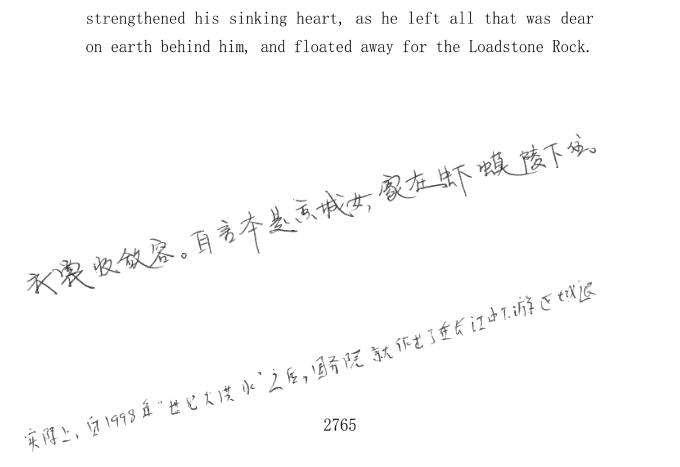 strengthened his sinking heart, as he left all that was dear
on earth behind him, and floated away for the Loadstone Rock.
衣裳收敛容。自言本是京城女,家在虾蟆陵下住。
实际上,自1998年“世纪大洪水”之后,国务院就作出了在长江中下游区域退
2765